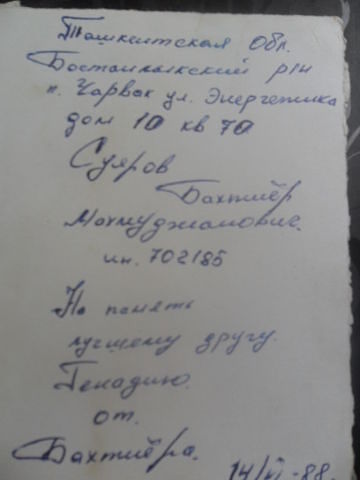 Ташкентская обл.
Бостанлыкский р/н
п. Чарвак ул. Энергетика
дом 10 кв 70
Суяров
Бахтиёр
Махмуджанович.
ин. 702185
На память
лучшему другу.
Генадию.
от.
Бахтиёра.
14/VI-88.